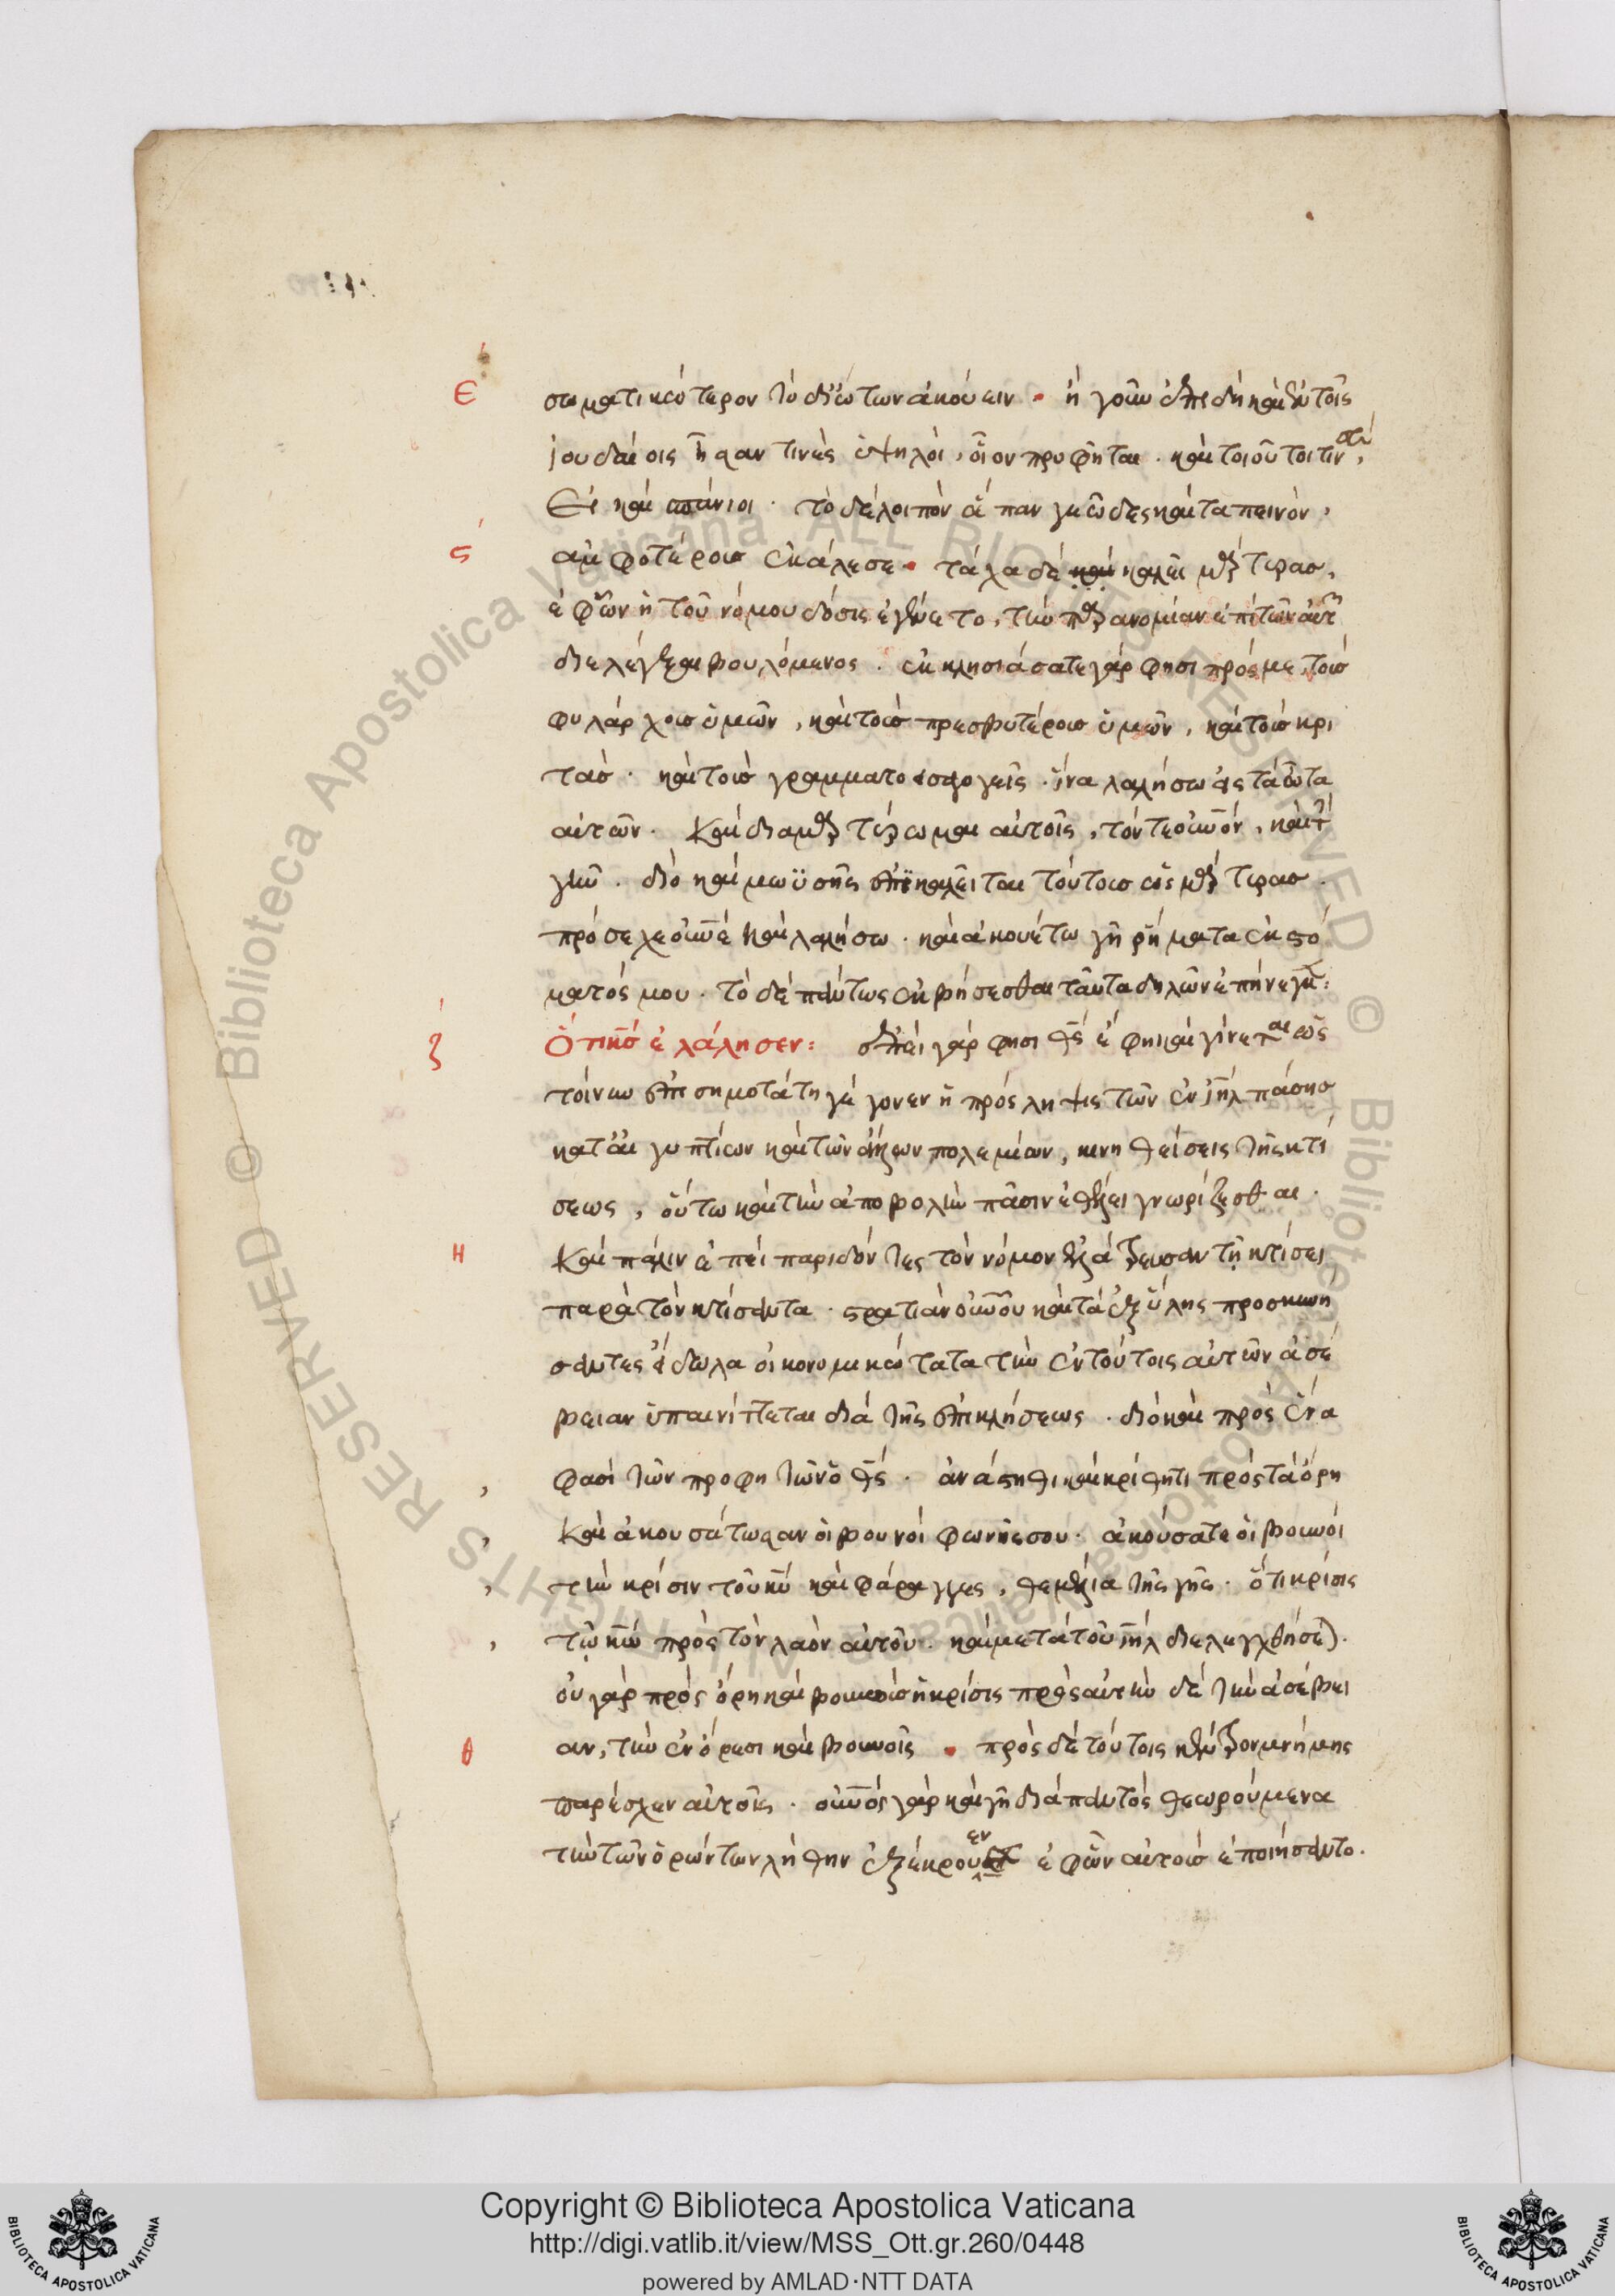 Ε σωματικώτερον τὸ δι' ὤτων ἀκούειν · ἢ γοῦν ἐπειδὴ καὶ ἐν τοῖς
ἰουδαίοις ἦσαν τινὲς ὑψηλοὶ, οἷον προφῆται. καὶ τοιοῦτοι τινὲς,
Εἰ καὶ σπάνιοι · τὸ δὲ λοιπὸν ἅπαν γεῶδες καὶ ταπεινὸν,
ς ἀμφοτέρους ἐκάλεσε · τάχα δὲ καὶ καλεῖ μάρτυρας,
ἐφ' ὧν ἡ τοῦ νόμου δόσις ἐγένετο, τὴν παρανομίαν ἐπὶ τῶν αὐτῶν
διελέγξαι βουλόμενος · ἐκκλησιάσατε γάρ φησι πρός με, τοὺς
φυλάρχους ὑμῶν, καὶ τοὺς πρεσβυτέρους ὑμῶν, καὶ τοὺς κρι
τὰς · καὶ τοὺς γραμματοεισαγωγεῖς · ἵνα λαλήσω εἰς τὰ ὦτα
αὐτῶν · Καὶ διαμαρτύρωμαι αὐτοῖς, τόν τε οὐνὸν, καὶ τὴν
γῆν · διὸ καὶ μωϋσῆς ἐπικαλεῖται τούτους ὡς μάρτυρας ·
πρόσεχε οὐνὲ Καὶ λαλήσω · καὶ ἀκουέτω γῆ ῥήματα ἐκ στό
ματός μου · τὸ δὲ πάντως ἐκβήσεσθαι ταῦτα δηλῶν ἐπήνεγκε:
ζ Ὅτι κς ἐλάλησεν: ἐπεὶ γάρ φησι θς ἔφη καὶ γίνεται ὡς
τοίνυν ἐπισημοτάτη γέγονεν ἡ πρόσληψις τῶν ἐν ιηλ πάσης
κατ' αἰγυπτίων καὶ τῶν ἄλλων πολεμίων, κινηθείσεις τῆς κτί
σεως, οὕτω καὶ τὴν ἀποβολὴν πᾶσιν ἐθέλει γνωρίζεσθαι ·
Η Καὶ πάλιν ἐπεὶ παριδόντες τὸν νόμον ἐλάτρευσαν τῇ κτίσει
παρὰ τὸν κτίσαντα · στρατιὰν οὐνοῦ καὶ τὰ ἐξ ὕλης προσκυνή
σαντες εἴδωλα οἰκονομικώτατα τὴν ἐν τούτοις αὐτῶν ἀσέ
βειαν ὑπαινίττεται διὰ τῆς ἐπικλήσεως · διὸ καὶ πρὸς ἕνα
φασὶ τῶν προφητῶν ὁ θς · ἀνάστηθι καὶ κρίθητι πρὸς τὰ ὄρη
Καὶ ἀκουσάτωσαν οἱ βουνοὶ φωνῆς σου · ἀκούσατε οἱ βουνοὶ
τὴν κρίσιν τοῦ κυ καὶ φάραγγες, θεμέλια τῆς γῆς · ὅτι κρίσις
τῷ κω πρὸς τὸν λαὸν αὐτοῦ · καὶ μετὰ τοῦ ιηλ διελεγχθήσεται ·
οὐ γὰρ πρὸς ὄρη καὶ βουνοὺς ἡ κρίσις πρὸς αὐτὴν δὲ τὴν ἀσέβει
θ αν, τὴν ἐν ὄρεσι καὶ βουνοῖς · πρὸς δὲ τούτοις κέντρον μνήμης
παρέσχεν αὐτοῖς · οὐνὸς γὰρ καὶ γῆ διὰ παντὸς θεωρούμενα
τὴν τῶν ὁρώντων λήθην ἐξέκρουεν ἐφ' ὧν αὐτοὺς ἐποιήσαντο.
Copyright © Biblioteca Apostolica Vaticana
http://digi.vatlib.it/view/MSS_Ott.gr.260/0448
powered by AMLAD·NTT DATA
BIBLIOTECA APOSTOLICA VATICANA
BIBLIOTECA APOSTOLICA VATICANA
© Biblioteca Apostolica Vaticana ALL RIGHTS RESERVED
© Biblioteca Apostolica Vaticana ALL RIGHTS RESERVED